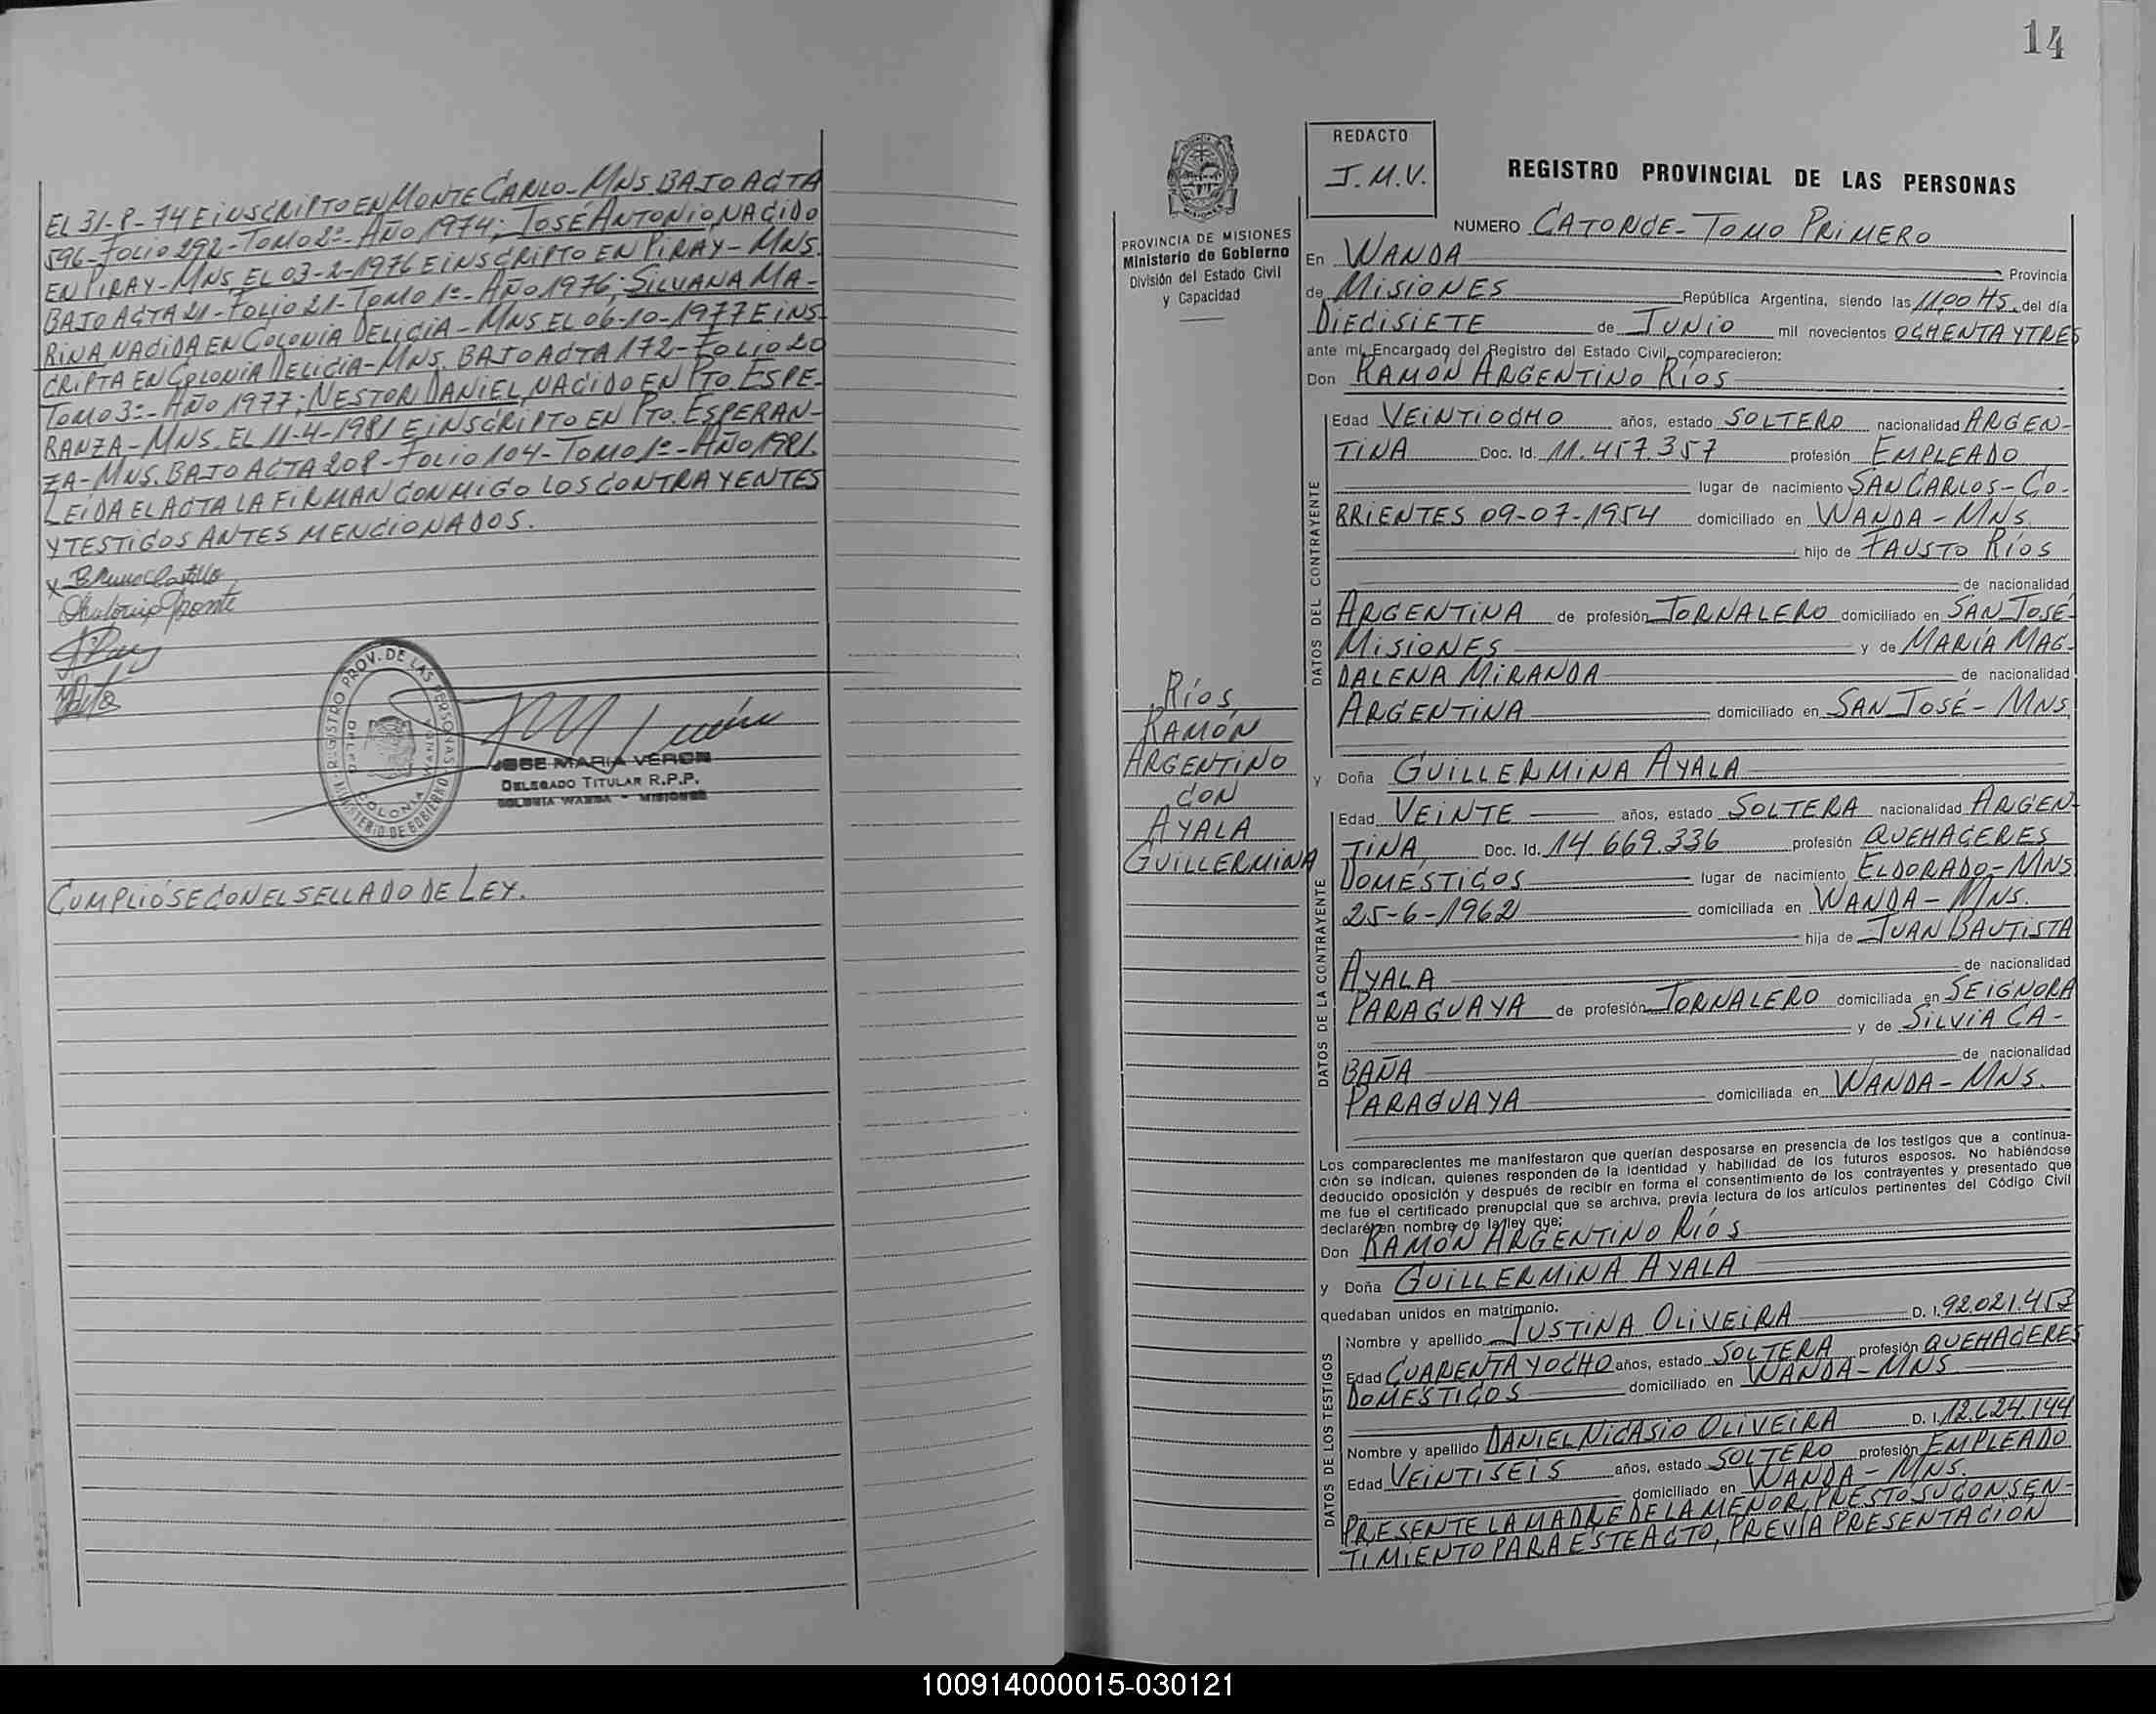 EL 31-8-74 E INSCRIPTO EN MONTE CARLO-MNS. BAJO ACTA
596-FOLIO 292-TOMO 2º-AÑO 1974; JOSÉ ANTONIO, NACIDO
EN PIRAY-MNS. EL 03-2-1976 E INSCRIPTO EN PIRAY-MNS.
BAJO ACTA 21-FOLIO 21-TOMO 1º-AÑO 1976; SILVANA MA-
RINA NACIDA EN COLONIA DELICIA-MNS EL 06-10-1977 E INS-
CRIPTA EN COLONIA DELICIA-MNS. BAJO ACTA 172-FOLIO 20
TOMO 3º-AÑO 1977; NESTOR DANIEL, NACIDO EN PTO. ESPE-
RANZA-MNS. EL 11-4-1981 E INSCRIPTO EN PTO. ESPERAN-
ZA-MNS. BAJO ACTA 208-FOLIO 104-TOMO 1º-AÑO 1981.
LEÍDA EL ACTA LA FIRMAN CONMIGO LOS CONTRAYENTES
Y TESTIGOS ANTES MENCIONADOS.
REGISTRO PROV. DE LAS PERSONAS
MINISTERIO DE GOBIERNO
COLONIA WANDA
JOSE MARIA VERON
DELEGADO TITULAR R.P.P.
COLONIA WANDA - MISIONES
CUMPLIÓSE CON EL SELLADO DE LEY.
14
PROVINCIA DE MISIONES
Ministerio de Gobierno
División del Estado Civil
y Capacidad
RÍOS,
RAMÓN
ARGENTINO
CON
AYALA
GUILLERMINA
REDACTO
J.M.V.
REGISTRO PROVINCIAL DE LAS PERSONAS
NUMERO CATORCE-TOMO PRIMERO
En WANDA Provincia
de MISIONES República Argentina, siendo las 11,00 HS. del día
DIECISIETE de JUNIO mil novecientos OCHENTA Y TRES
ante mí, Encargado del Registro del Estado Civil, comparecieron:
Don RAMÓN ARGENTINO RÍOS
DATOS DEL CONTRAYENTE
Edad VEINTIOCHO años, estado SOLTERO nacionalidad ARGEN-
TINA Doc. Id. 11.457.357 profesión EMPLEADO
lugar de nacimiento SAN CARLOS-CO-
RRIENTES 09-07-1954 domiciliado en WANDA-MNS.
hijo de FAUSTO RÍOS
de nacionalidad
ARGENTINA de profesión JORNALERO domiciliado en SAN JOSÉ-
MISIONES y de MARÍA MAG-
DALENA MIRANDA de nacionalidad
ARGENTINA domiciliado en SAN JOSÉ-MNS
y Doña GUILLERMINA AYALA
DATOS DE LA CONTRAYENTE
Edad VEINTE años, estado SOLTERA nacionalidad ARGEN-
TINA Doc. Id. 14.669.336 profesión QUEHACERES
DOMÉSTICOS lugar de nacimiento ELDORADO-MNS
25-6-1962 domiciliada en WANDA-MNS.
hija de JUAN BAUTISTA
AYALA de nacionalidad
PARAGUAYA de profesión JORNALERO domiciliada en SEIGNORA
y de SILVIA CA-
BAÑA de nacionalidad
PARAGUAYA domiciliada en WANDA-MNS.
Los comparecientes me manifestaron que querían desposarse en presencia de los testigos que a continua-
ción se indican, quienes responden de la identidad y habilidad de los futuros esposos. No habiéndose
deducido oposición y después de recibir en forma el consentimiento de los contrayentes y presentado que
me fue el certificado prenupcial que se archiva, previa lectura de los artículos pertinentes del Código Civil
declaré en nombre de la ley que:
Don RAMÓN ARGENTINO RÍOS
y Doña GUILLERMINA AYALA
quedaban unidos en matrimonio.
DATOS DE LOS TESTIGOS
Nombre y apellido JUSTINA OLIVEIRA D. I. 92.021.453
Edad CUARENTA Y OCHO años, estado SOLTERA profesión QUEHACERES
DOMÉSTICOS domiciliado en WANDA-MNS
Nombre y apellido DANIEL NICASIO OLIVEIRA D. I. 12.624.144
Edad VEINTISEIS años, estado SOLTERO profesión EMPLEADO
domiciliado en WANDA-MNS.
PRESENTE LA MADRE DE LA MENOR, PRESTÓ SU CONSEN-
TIMIENTO PARA ESTE ACTO, PREVIA PRESENTACIÓN
100914000015-030121